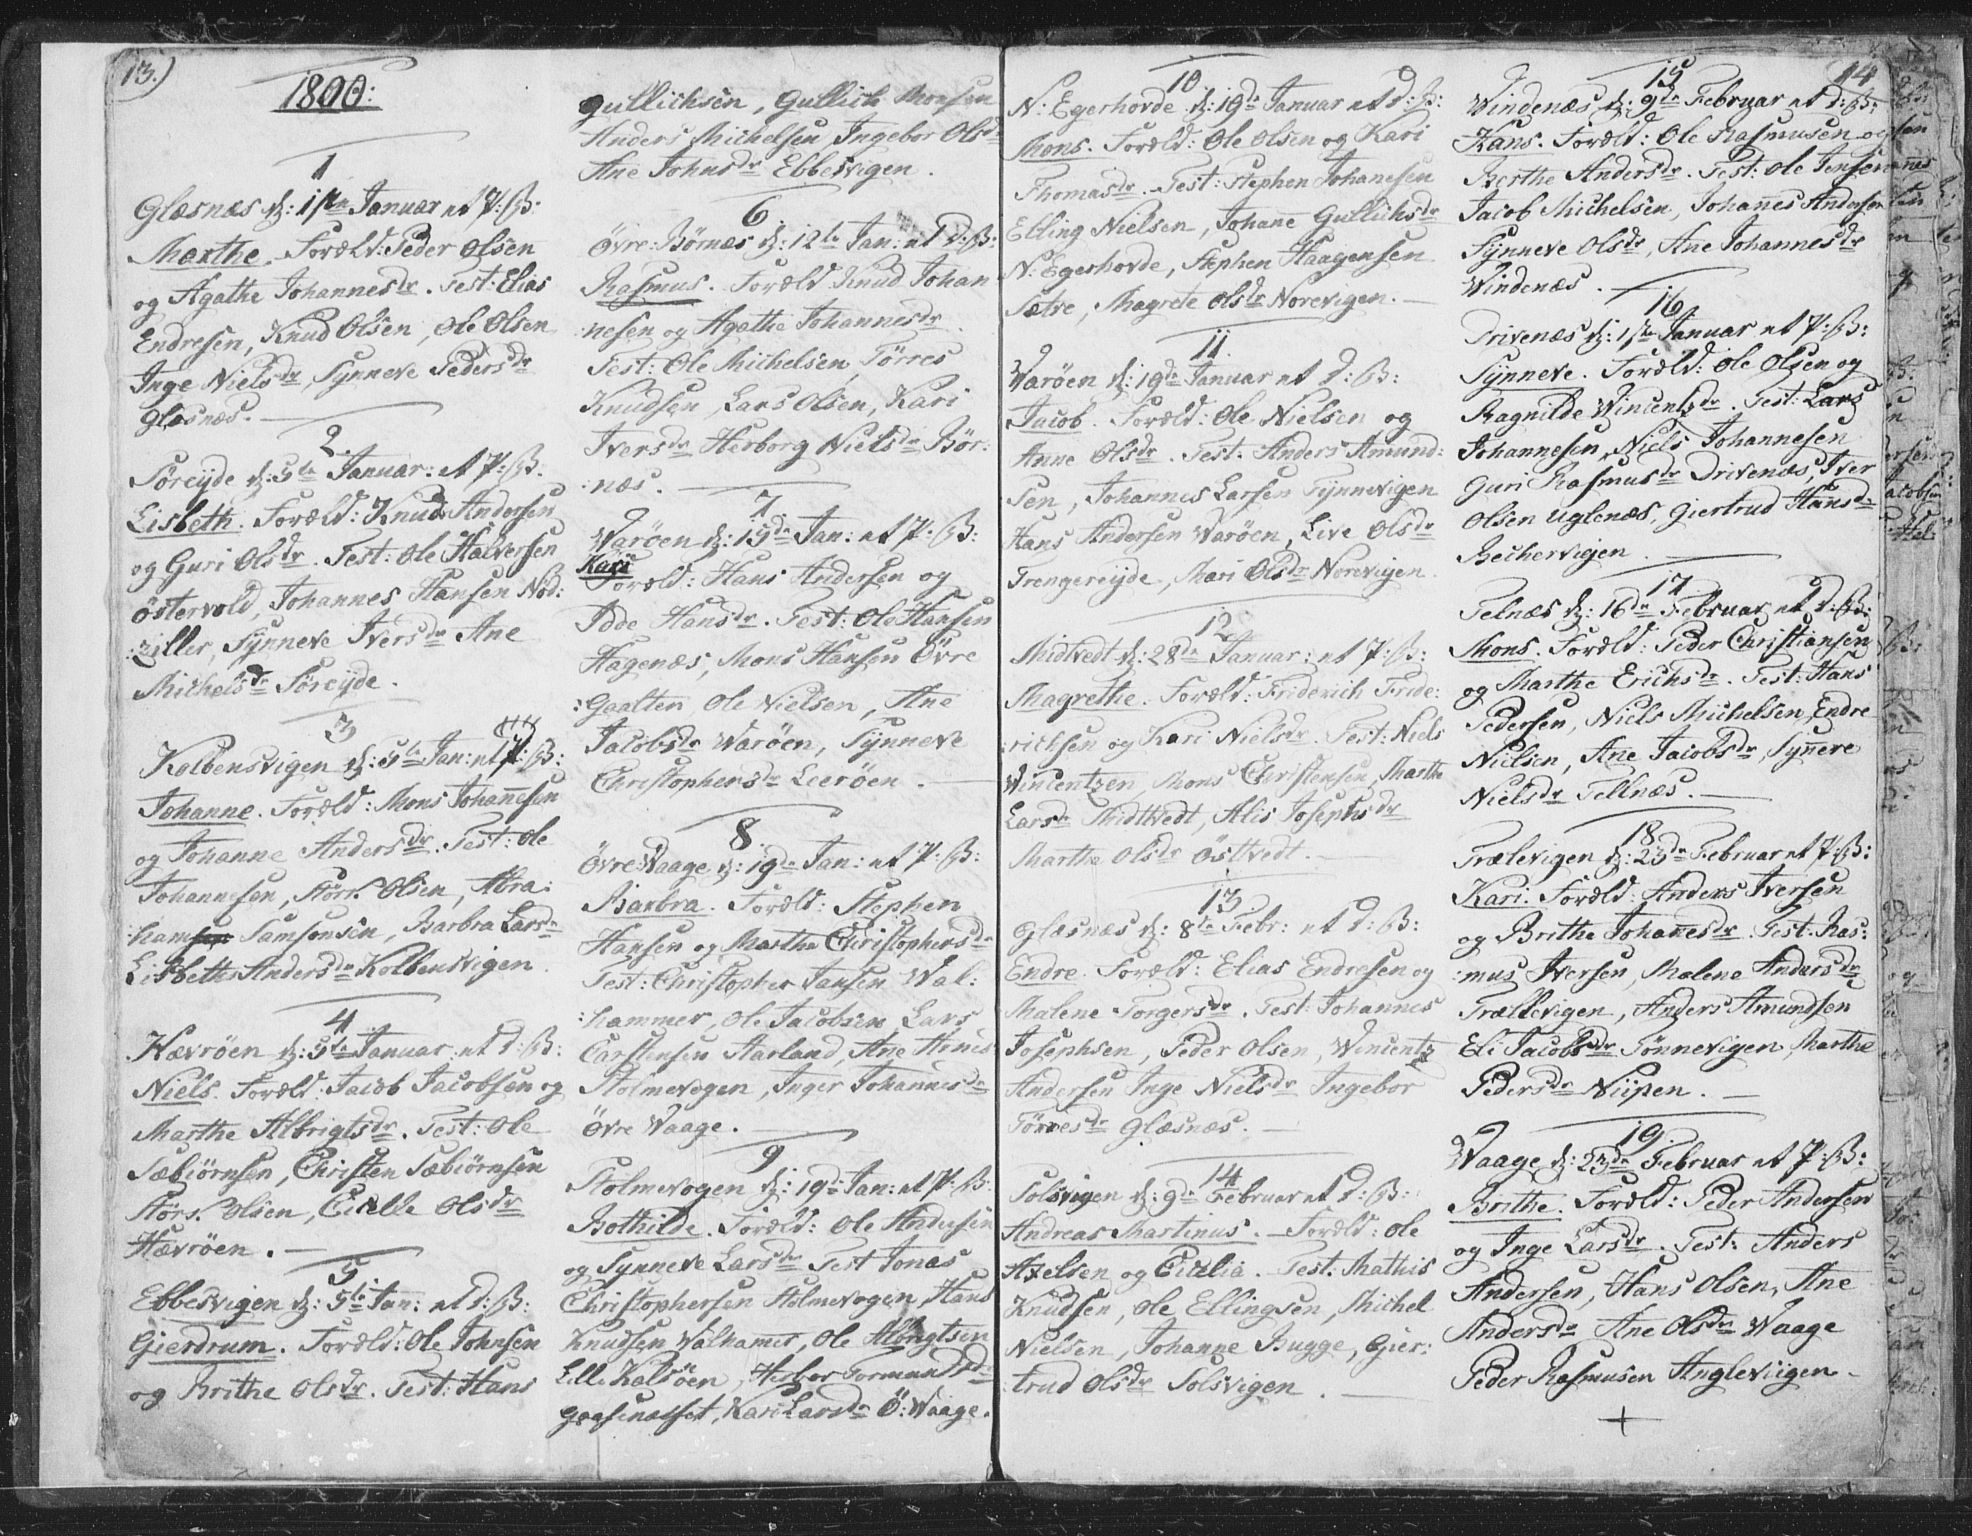 13.)
1800:
1
Glæsnæs d: 1ste Januar et P: B:
Marthe. Foræld: Peder Olsen
og Agathe Johannesdr. Test: Elias
Endresen, Knud Olsen, Ole Olsen
Inge Nielsdr, Synneve Pedersdr
Glæsnæs.
2.
Söreyde d: 5te Januar: et P: B:
Lisbeth. Foræld: Knud Andersen
og Guri Olsdr. Test: Ole Halversen
Östervold, Johannes Hansen Nöd:
:ziller, Synneve Iversdr Ane
Michelsdr Söreyde.
3
Kolbensvigen d: 5te Jan: et P: B:
Johanne. Foræld: Mons Johanesen
og Johanne Andersdr. Test: Ole
Johannesen, Störs. Olsen, Abra:
:ham Samsonsen, Barbra Larsdr
Lisbeth Andersdr Kolbensvigen.
4
Hævröen d: 5te Januar et D: B:
Niels. Foræld: Jacob Jacobsen og
Marthe Albrigtsdr. Test: Ole
Sæbiörnsen, Christen Sæbiörnsen
Störs. Olsen, Cicelle Olsdr
Hævröen.
5
Ebbesvigen d: 5te Jan: et D: B:
Gierdrum. Foræld: Ole Johnsen
og Brithe Olsdr. Test: Hans
Gullichsen, Gullich Monsen
Anders Michelsen Ingebor Olsdr
Ane Johnsdr Ebbesvigen.
6
Övre: Börnæs d: 12te Jan: et D: B:
Rasmus. Foræld Knud Johan
:nesen og Agathe Johannesdr
Test: Ole Michelsen Törres
Knudsen, Lars Olsen, Kari
Iversdr Herborg Nielsdr Bör:
:næs.
7
Waröen d: 15de Jan: et P: B:
Kari
Foræld: Hans Andersen og
Odde Hansdr. Test: Ole Hansen
Hagenæs, Mons Hansen Övre
:Gaalten, Ole Nielsen, Ane
Jacobsdr Waröen, Synneve
Christophersdr Leeröen.
8
Övre Waage d: 19de Jan: et P: B:
Barbra. Foræld: Stephen
Hansen og Marthe Christophersdr
Test: Christopher Jansen Wal:
:hammer, Ole Jacobsen Lars
Carstensen Aarland, Ane Arnes
Stolmevogen, Inger Johannesdr
Övre Waage.
9
Stolmevogen d: 19de Jan: et P: B:
Bothilde. Foræld: Ole Andersen
og Synneve Larsdr Test Jonas
Christophersen Stolmevogen, Hans
Knudsen Walhamer, Ole Albrigtsen
Lille Kalsöen, Herbor Tormundsdr
Gaasenæsset, Kari Larsdr Ö: Waage.
10
N: Egerhovde d: 19de Januar et D: B:
Mons. Foræld: Ole Olsen og Kari
Thomasdr. Test: Stephen Johanesen
Elling Nielsen, Johane Gullichsdr
N: Egerhovde, Stephen Haagensen
Sætre, Magrete Olsdr Norevigen.
11.
Waröen d: 19de Januar et D: B:
Jacob. Foræld: Ole Nielsen og
Anne Olsdr. Test: Anders Amund:
sen, Johannes Larsen Synnevigen
Hans Andersen Waröen, Live Olsdr
Trengereyde, Mari Olsdr Norevigen.
12
Midtvedt d: 28de Januar: et P: B:
Magrethe. Foræld: Friderich Fride:
:richsen og Kari Nielsdr. Test: Niels
Wincentzen, Mons Christensen, Marthe
Larsdr Midtvedt, Alis Josephsdr
Marthe Olsdr Östtvedt.
13.
Glæsnæs d: 8te Febr: et D: B:
Endre. Foræld: Elias Endresen og
Malene Torgersdr. Test: Johannes
Josephsen, Peder Olsen, Wincentz
Andersen Inge Nielsdr Ingebor
Törresdr Glæsnæs.
14
Solsvigen d: 9de Februar et D: B:
Andreas Martinus. Foræld: Ole
Axelsen og Cicilia. Test: Mathis
Knudsen, Ole Ellingsen, Michel
Nielsen, Johanne Bugge, Gier:
:trud Olsdr Solsvigen.
14
15
Windenæs d: 9de Februar et D: B:
Hans. Foræld: Ole Rasmusen og
Berthe Andersdr. Test: Ole Jensen
Jacob Michelsen, Johanes Andersen
Synneve Olsdr, Ane Johannesdr
Windenæs.
16
Drivenæs d: 1ste Januar et P: B:
Synneve. Foræld: Ole Olsen og
Ragnilde Wincentzdr. Test: Lars
Johannesen, Niels Johannesen
Guri Rasmusdr Drivenæs, Iver
Olsen Uglenæs, Giertrud Hansdr
Bechervigen.
17
Telnæs d: 16de Februar et D: B:
Mons. Foræld: Peder Christiansen
og Marthe Erichsdr. Test: Hans
Pedersen, Niels Michelsen, Endre
Nielsen, Ane Jacobsdr, Synneve
Nielsdr Tellnæs.
18
Trælevigen d: 23de Februar et P: B:
Kari. Foræld: Anders Iversen
og Brithe Johanesdr. Test: Ras:
:mus Iversen, Malene Andersdr
Trællevigen, Anders Amundsen
Eli Jacobsdr Tönnevigen, Marthe
Pedersdr Nupen.
19.
Waage d: 23de Februar et P: B:
Brithe. Foræld: Peder Andersen
og Inge Larsdr. Test: Anders
Andersen, Hans Olsen, Ane
Andersdr Ane Olsdr Waage
Peder Rasmusen Angleviigen.